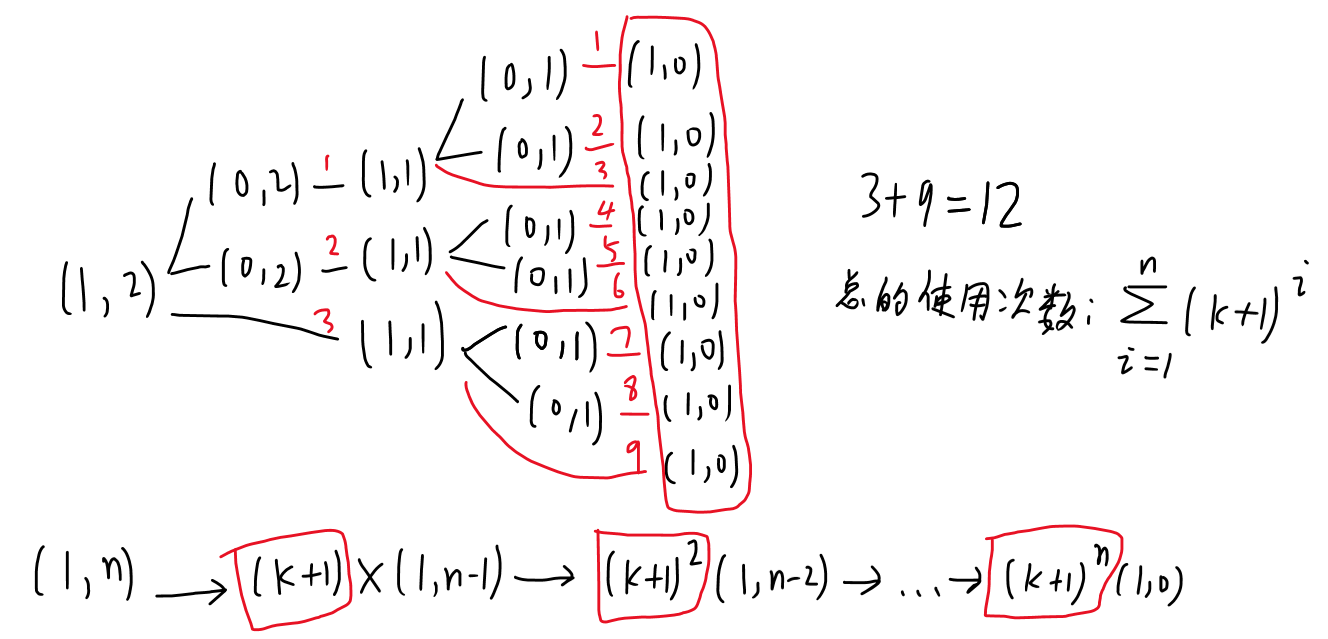 (0,1) 1 (1,0)
(0,1) 2 (1,0)
(0,2) 1 (1,1) 3 (1,0)
(0,1) 4 (1,0)
(0,2) 2 (1,1) (0,1) 5 (1,0)
(1,2) 6 (1,0)
3 (1,1) (0,1) 7 (1,0)
(0,1) 8 (1,0)
9 (1,0)
3+9=12
总的使用次数: n∑i=1 (k+1)^i
(1,n) → (k+1) X (1,n-1) → (k+1)^2 (1,n-2) → ... → (k+1)^n (1,0)